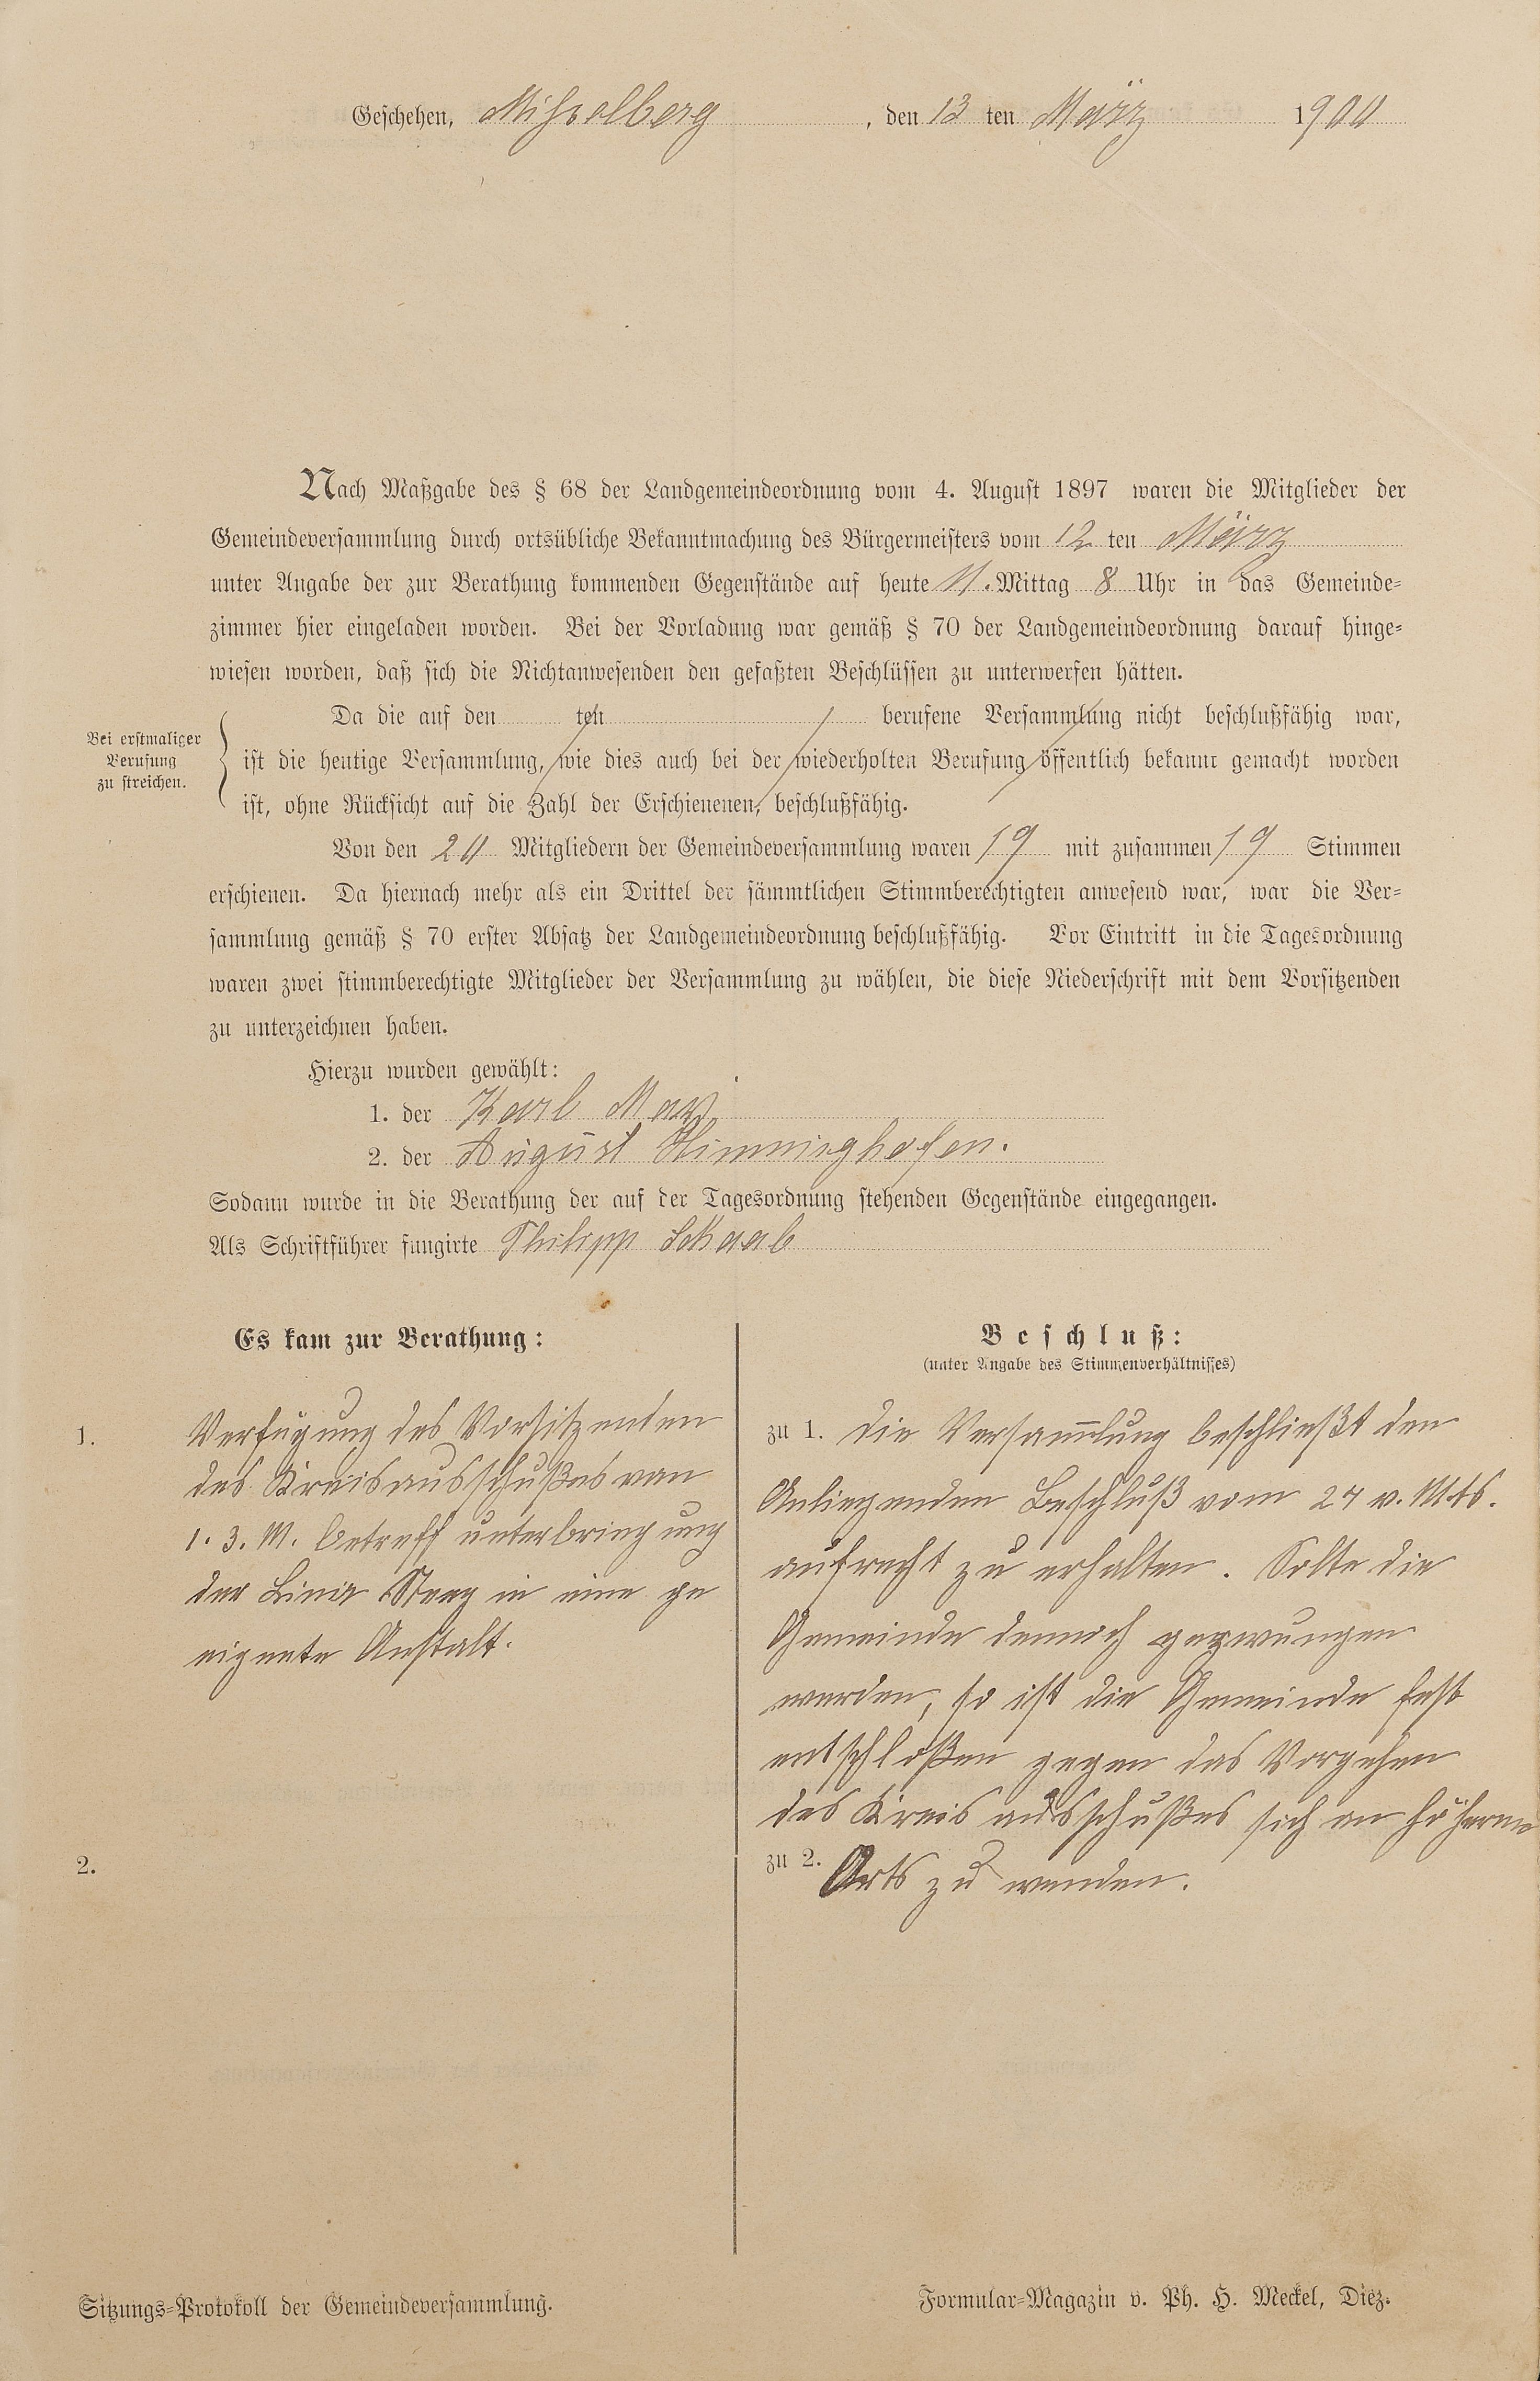 Geschehen, Misselberg, den 13 ten März 1900
Nach Maßgabe des § 68 der Landgemeindeordnung vom 4. August 1897 waren die Mitglieder der
Gemeindeversammlung durch ortsübliche Bekanntmachung des Bürgermeisters vom 12 ten März
unter Angabe der zur Berathung kommenden Gegenstände auf heute N. Mittag 8 Uhr in das Gemeinde-
zimmer hier eingeladen worden. Bei der Vorladung war gemäß § 70 der Landgemeindeordnung darauf hinge-
wiesen worden, daß sich die Nichtanwesenden den gefaßten Beschlüssen zu unterwerfen hätten.
Bei erstmaliger
Berufung
zu streichen.
Da die auf den ten berufene Versammlung nicht beschlußfähig war,
ist die heutige Versammlung, wie dies auch bei der wiederholten Berufung öffentlich bekannt gemacht worden
ist, ohne Rücksicht auf die Zahl der Erschienenen, beschlußfähig.
Von den 20 Mitgliedern der Gemeindeversammlung waren 19 mit zusammen 19 Stimmen
erschienen. Da hiernach mehr als ein Drittel der sämmtlichen Stimmberechtigten anwesend war, war die Ver-
sammlung gemäß § 70 erster Absatz der Landgemeindeordnung beschlußfähig. Vor Eintritt in die Tagesordnung
waren zwei stimmberechtigte Mitglieder der Versammlung zu wählen, die diese Niederschrift mit dem Vorsitzenden
zu unterzeichnen haben.
Hierzu wurden gewählt:
1. der Karl May
2. der August Himminghofen.
Sodann wurde in die Berathung der auf der Tagesordnung stehenden Gegenstände eingegangen.
Als Schriftführer fungirte Philipp Schaab
Es kam zur Berathung:
1. Verfügung des Vorsitzenden
des Kreisausschußes von
1. 3. M. betreff unterbringung
der Lina Steeg in eine ge
eignete Anstalt.
2.
Beschluß:
(unter Angabe des Stimmenverhältnisses)
zu 1. Die Versammlung beschließt den
Anliegenden Beschluß vom 27 v. Mts.
aufrecht zu erhalten. Solte die
Gemeinde dennoch gezwungen
werden, so ist die Gemeinde fest
entschloßen gegen das Vorgehen
des Kreisausschußes sich an höheren
zu 2. Orts zu wenden.
Sitzungs-Protokoll der Gemeindeversammlung.
Formular-Magazin v. Ph. H. Meckel, Diez.